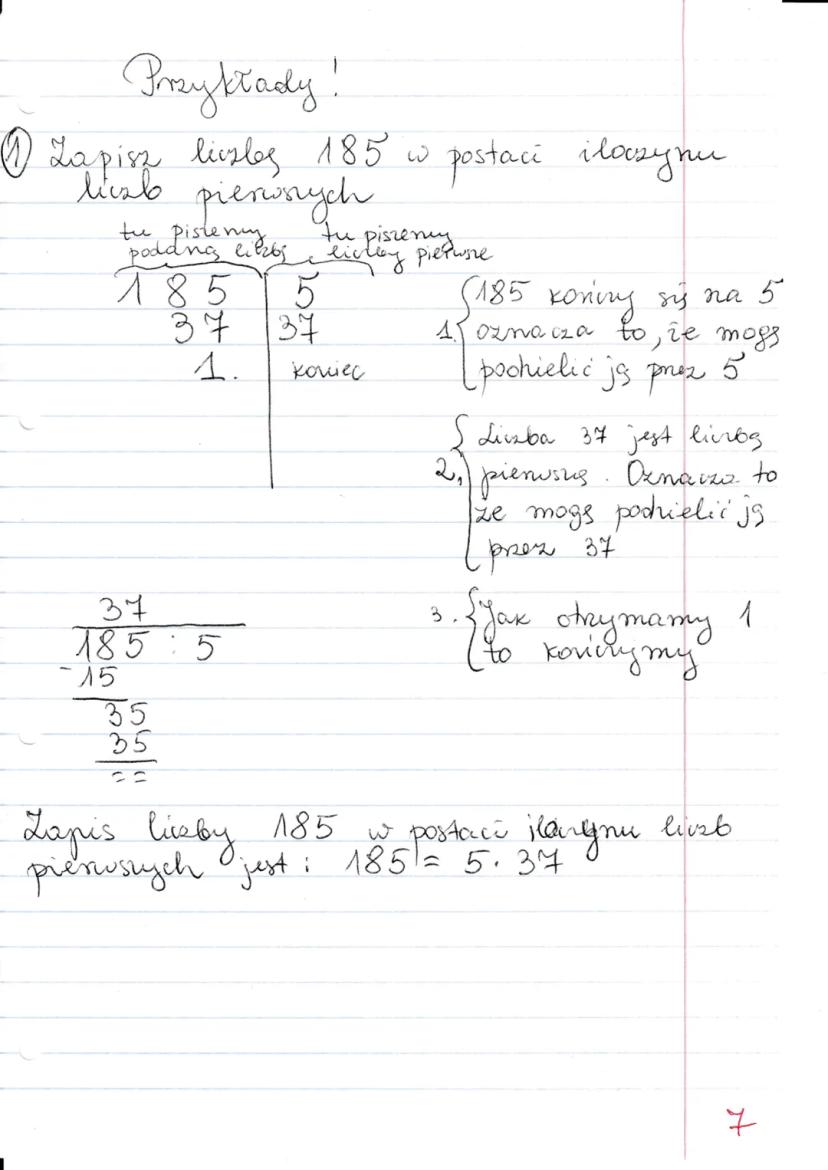 Przykłady!
1 Zapisz liczbę 185 w postaci iloczynu
liczb pierwszych
tu piszemy tu piszemy
podaną liczbę liczby pierwsze
185 | 5
37 | 37
1. | koniec
1. 185 kończy się na 5
oznacza to, że mogę
podzielić ją przez 5
2. Liczba 37 jest liczbą
pierwszą. Oznacza to
że mogę podzielić ją
przez 37
3. Jak otrzymamy 1
to kończymy
37
185 : 5
-15
35
35
==
Zapis liczby 185 w postaci iloczynu liczb
pierwszych jest: 185 = 5 · 37
7